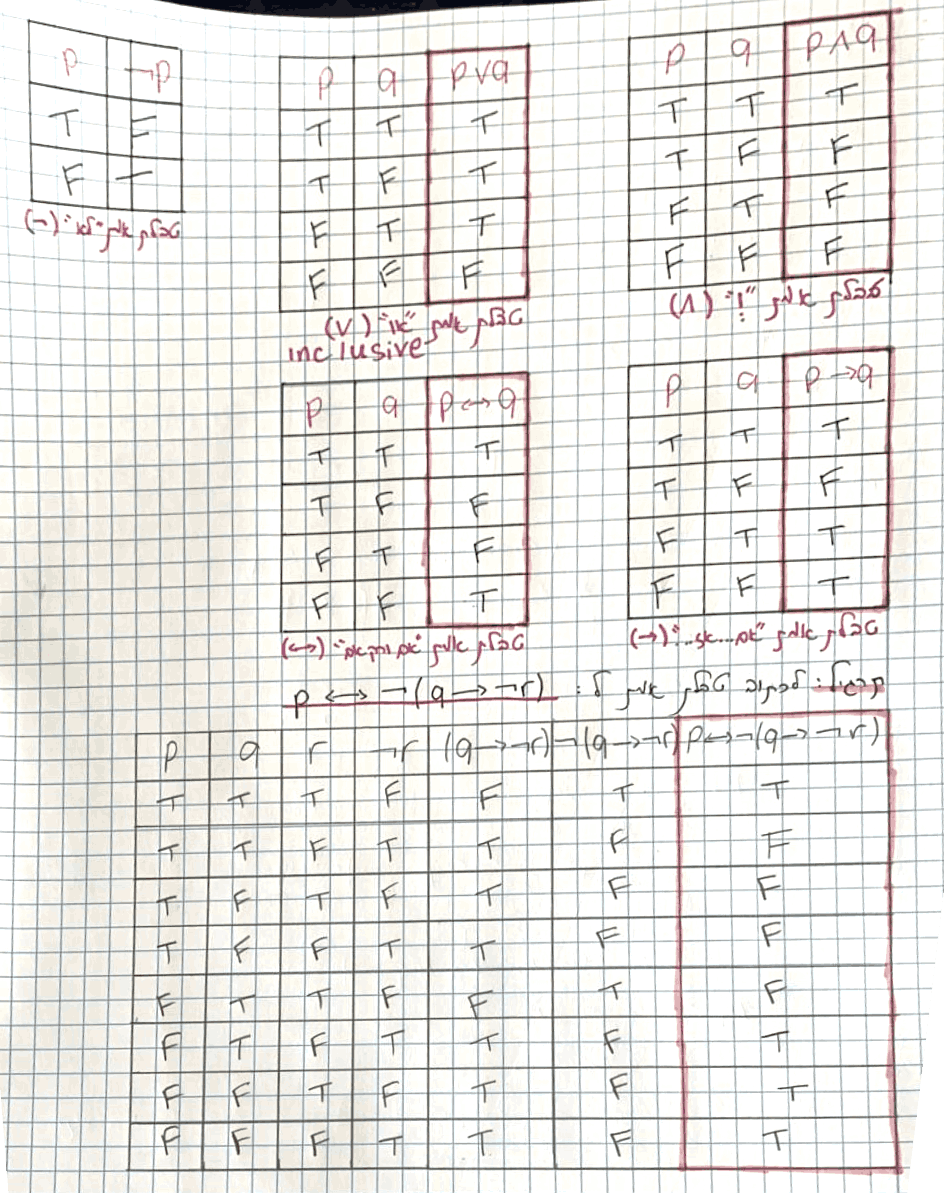 p ¬p
T F
F T
טבלת אמת "לא" (¬)
p q p∨q
T T T
T F T
F T T
F F F
טבלת אמת "או" (∨)
inclusive
p q p∧q
T T T
T F F
F T F
F F F
טבלת אמת "וגם" (∧)
p q p↔q
T T T
T F F
F T F
F F T
טבלת אמת "אם ורק אם" (↔)
p q p→q
T T T
T F F
F T T
F F T
טבלת אמת "אם...אז..." (→)
תרגיל: לכתוב טבלת אמת ל: p ↔ ¬(q → ¬r)
p q r ¬r (q→¬r) ¬(q→¬r) p↔¬(q→¬r)
T T T F F T T
T T F T T F F
T F T F T F F
T F F T T F F
F T T F F T F
F T F T T F T
F F T F T F T
F F F T T F T